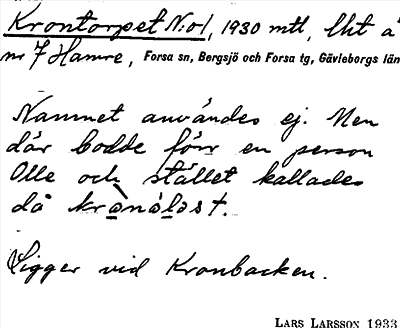 Krontorpet N:o1, 1930 mtl, lht å
nr 7 Hamre, Forsa sn, Bergsjö och Forsa tg, Gävleborgs län
Namnet användes ej. Men
där bodde förr en person
Olle och stället kallades
då krànáləst.
Ligger vid Kronbacken.
LARS LARSSON 1933